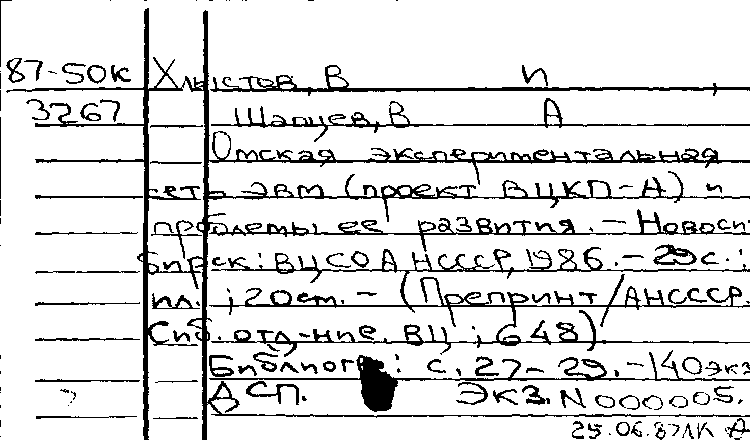 87-50К Хлыстов, В И
3267 Шапцев, В А
Омская экспериментальная
сеть ЭВМ (проект ВЦКП-А) и
проблемы ее развития. - Новоси
бирск: ВЦ СО АНСССР, 1986. - 29 с.:
ил. ; 20 см. - (Препринт / АНСССР.
Сиб. отд-ние. ВЦ ; 648).
Библиогр.: с. 27-29. - 140 экз
ДСП. Экз. N 000005.
25.06.87